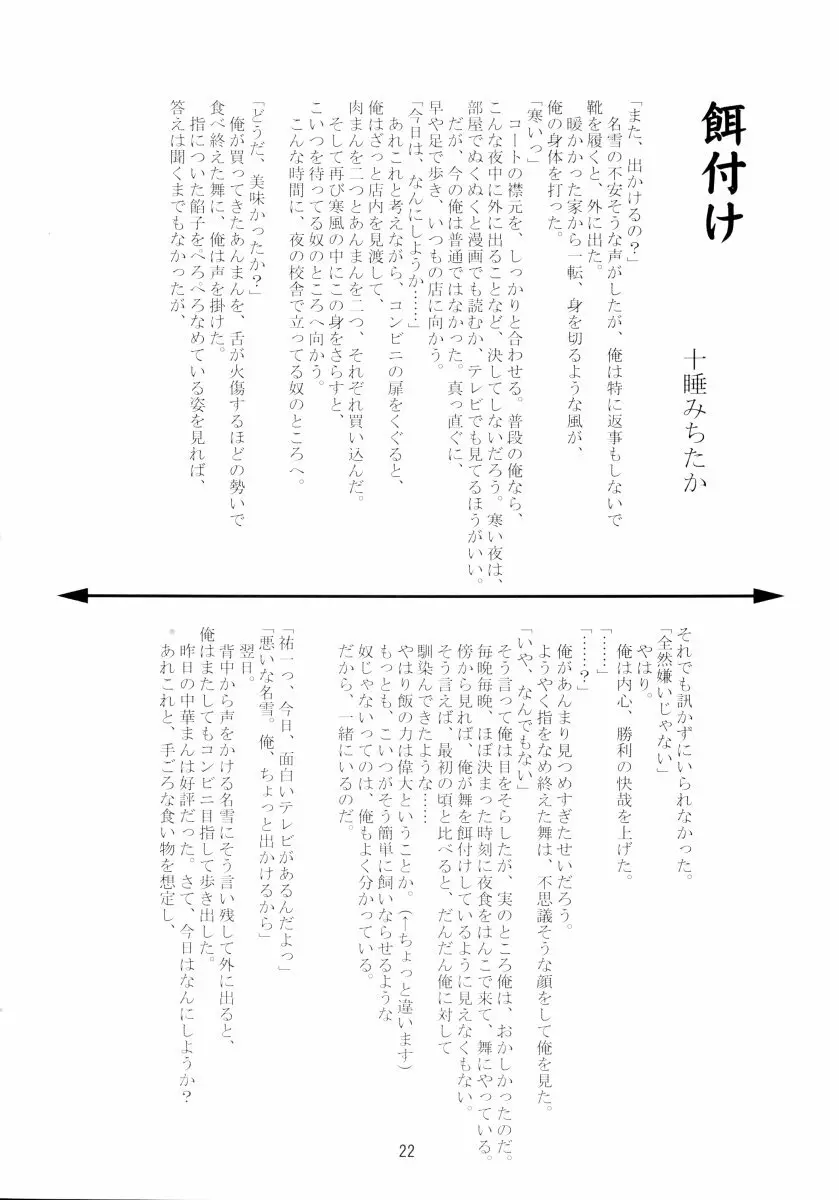 餌付け
十睡みちたか
「また、出かけるの？」
名雪の不安そうな声がしたが、俺は特に返事もしないで
靴を履くと、外に出た。
暖かかった家から一転、身を切るような風が、
俺の身体を打った。
「寒いっ」
コートの襟元を、しっかりと合わせる。普段の俺なら、
こんな夜中に外に出ることなど、決してしないだろう。寒い夜は、
部屋でぬくぬくと漫画でも読むか、テレビでも見てるほうがいい。
だが、今の俺は普通ではなかった。真っ直ぐに、
早や足で歩き、いつもの店に向かう。
「今日は、なんにしようか……」
あれこれと考えながら、コンビニの扉をくぐると、
俺はざっと店内を見渡して、
肉まんを二つとあんまんを二つ、それぞれ買い込んだ。
そして再び寒風の中にこの身をさらすと、
こいつを待ってる奴のところへ向かう。
こんな時間に、夜の校舎で立ってる奴のところへ。
「どうだ、美味かったか？」
俺が買ってきたあんまんを、舌が火傷するほどの勢いで
食べ終えた舞に、俺は声を掛けた。
指についた餡子をぺろぺろなめている姿を見れば、
答えは聞くまでもなかったが、
それでも訊かずにいられなかった。
「全然嫌いじゃない」
やはり。
俺は内心、勝利の快哉を上げた。
「……」
「……？」
俺があんまり見つめすぎたせいだろう。
ようやく指をなめ終えた舞は、不思議そうな顔をして俺を見た。
「いや、なんでもない」
そう言って俺は目をそらしたが、実のところ俺は、おかしかったのだ。
毎晩毎晩、ほぼ決まった時刻に夜食をはんこで来て、舞にやっている。
傍から見れば、俺が舞を餌付けしているように見えなくもない。
そう言えば、最初の頃と比べると、だんだん俺に対して
馴染んできたような……
やはり飯の力は偉大ということか。（←ちょっと違います）
もっとも、こいつがそう簡単に飼いならせるような
奴じゃないってのは、俺もよく分かっている。
だから、一緒にいるのだ。
「祐一っ、今日、面白いテレビがあるんだよっ」
「悪いな名雪。俺、ちょっと出かけるから」
翌日。
背中から声をかける名雪にそう言い残して外に出ると、
俺はまたしてもコンビニ目指して歩き出した。
昨日の中華まんは好評だった。さて、今日はなんにしようか？
あれこれと、手ごろな食い物を想定し、
22